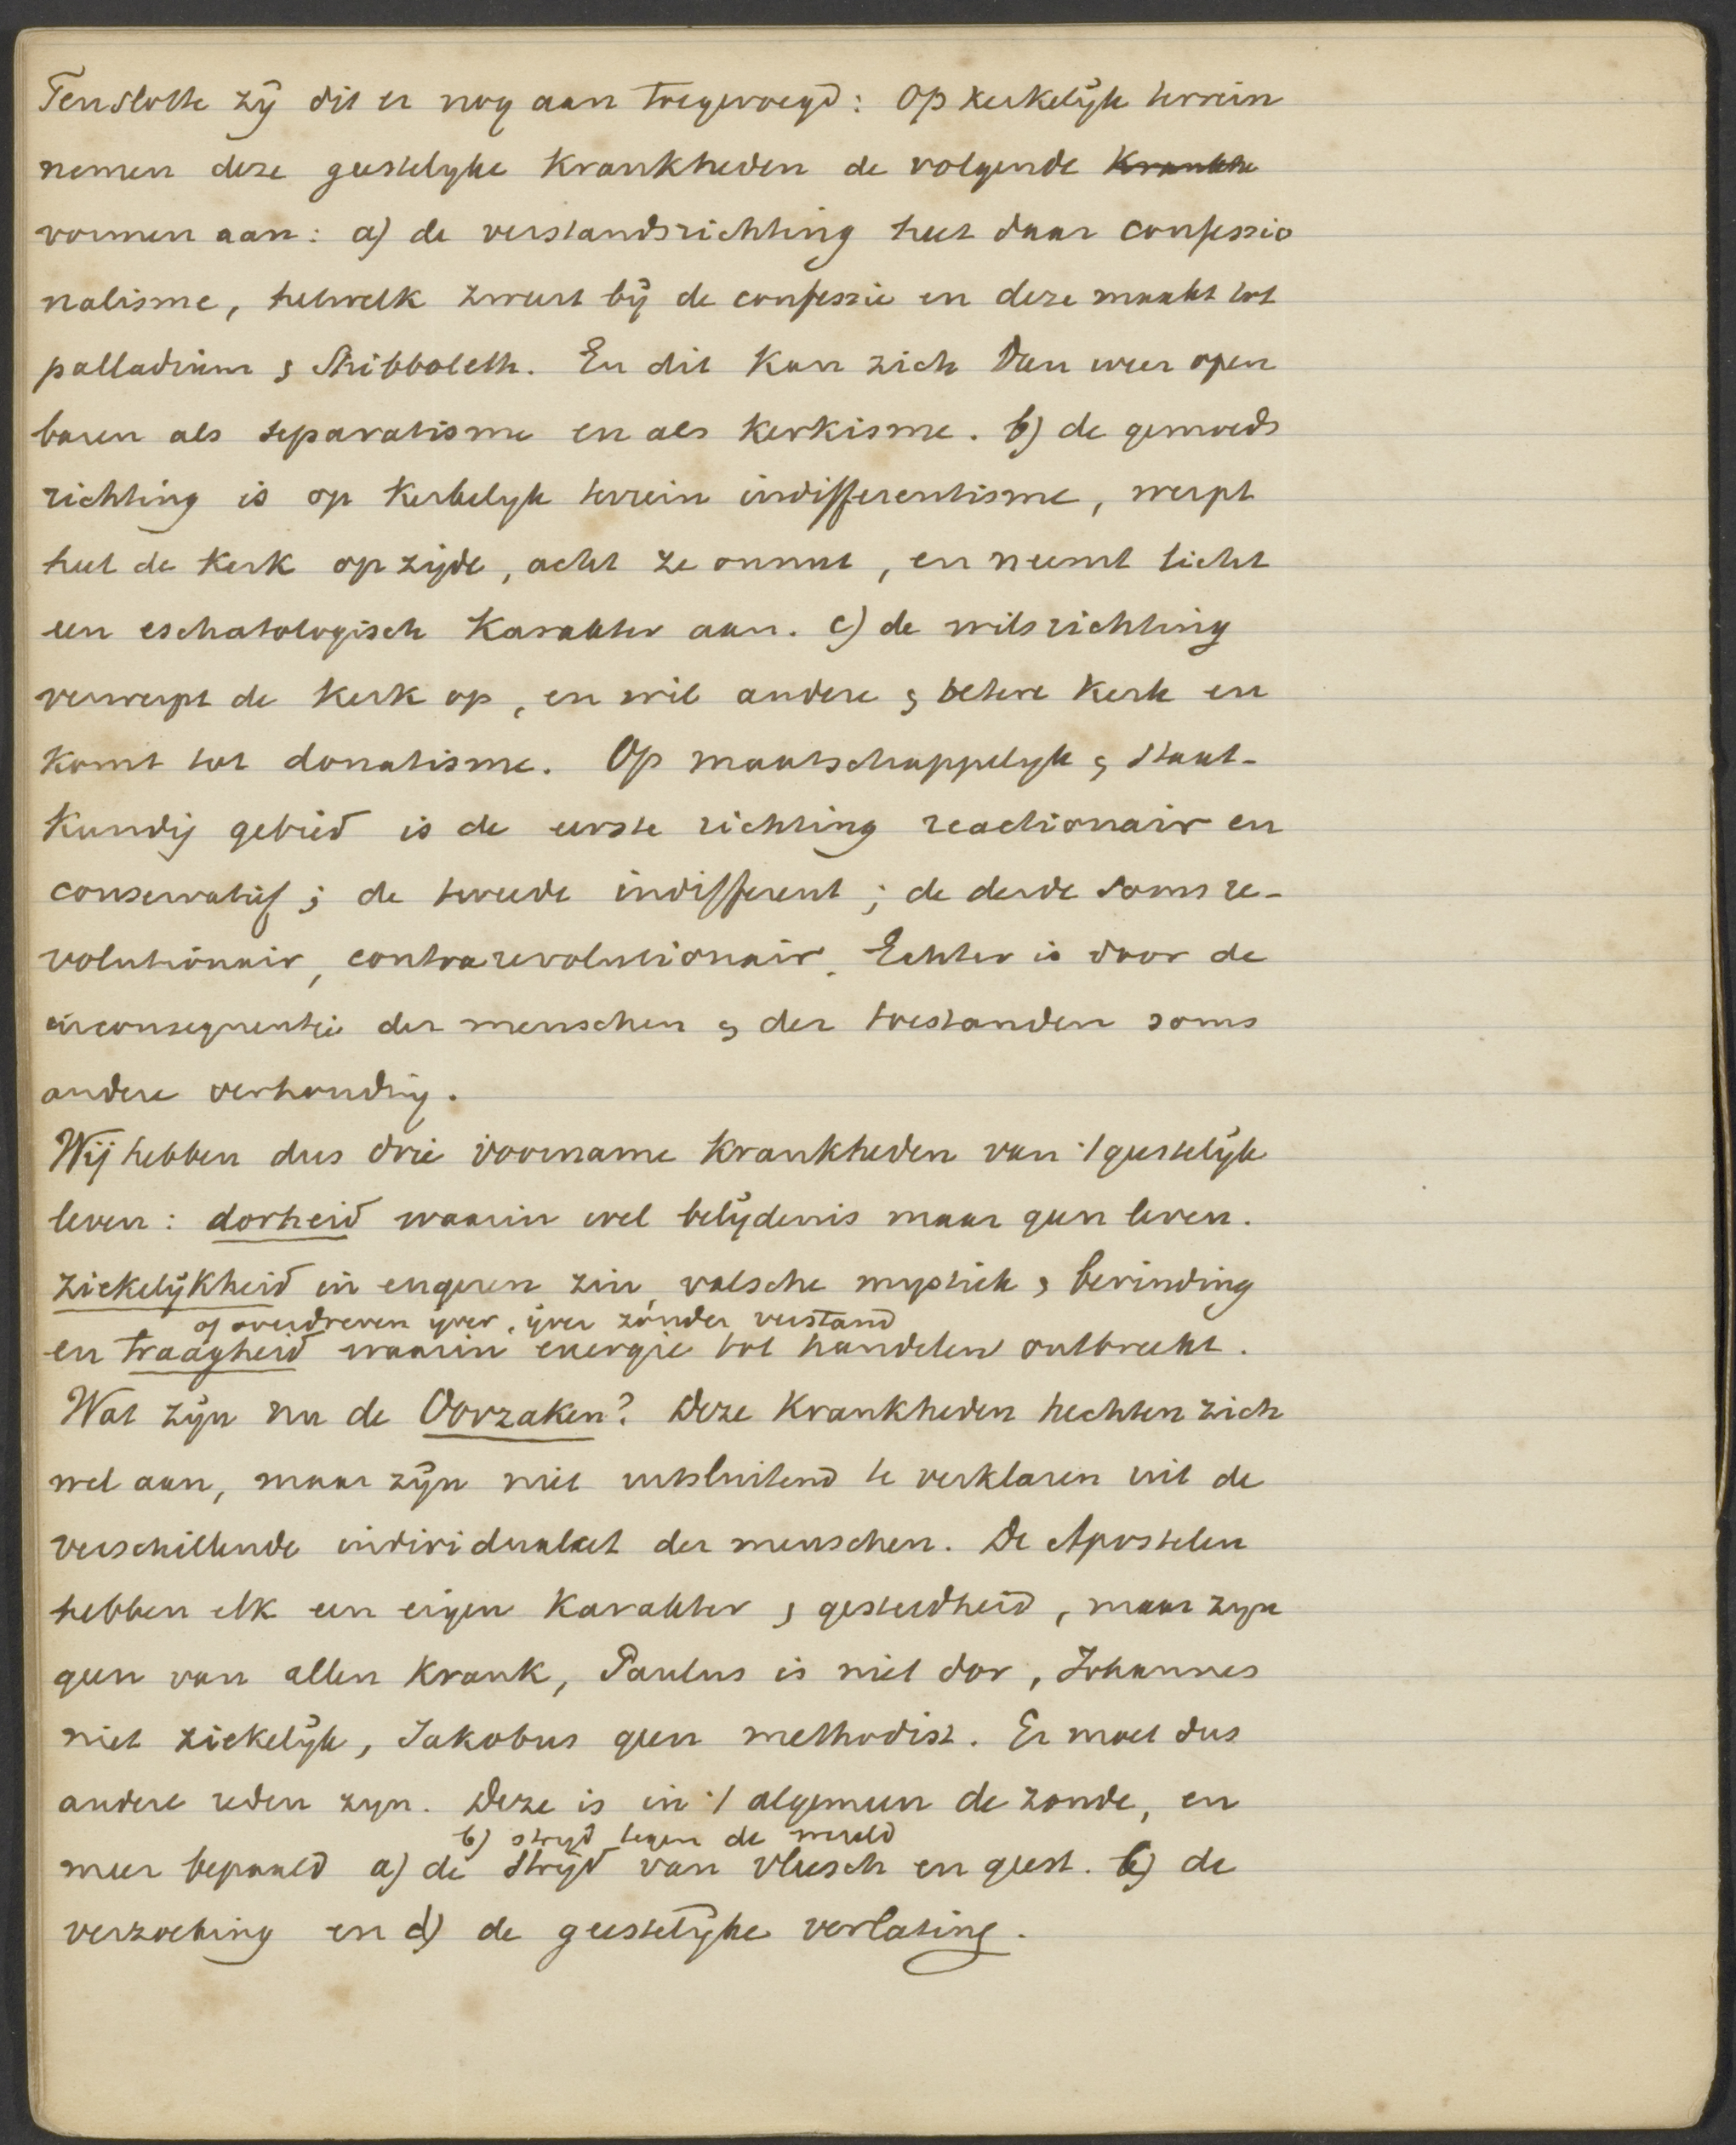 Tenslotte zij dit er nog aan toegevoegd: Op kerkelijk terrein
nemen deze geestelyke Krankheden de volgende Krankhe
vormen aan: a) de verstandsrichting heet daar confessio
nalisme, hetwelk zweert bij de confessie en deze maakt tot
palladium & Shibboleth. En dit Kan zich dan weer open
baren als separatisme en als Kerkisme. b) de gemoeds
richting is op Kerkelyk terrein indifferentisme, werpt
heel de Kerk op zijde, acht ze onnut, en neemt licht
een eschatologisch Karakter aan. c) de wilsrichting
verwerpt de Kerk op, en wil andere & betere Kerk en
Komt tot donatisme. Op maatschappelyk & staat-
Kundig gebied is de eerste richting reactionair en
conservatief; de tweede indifferent; de derde soms re-
volutionair, contrarevolutionair. Echter is door de
inconsequentie der menschen & der toestanden soms
andere verhouding.
Wij hebben dus drie voorname Krankheden van 't geestelijk
leven: dorheid waarin wel belijdenis maar geen leven.
Ziekelijkheid in engeren zin, valsche mystiek & bevinding
of overdreven yver, yver zonder verstand
en traagheid waarin energie tot handelen ontbreekt.
Wat zijn nu de Oorzaken? Deze Krankheden hechten zich
wel aan, maar zijn niet uitsluitend te verklaren uit de
verschillende individualiteit der menschen. De Apostelen
hebben elk een eigen Karakter & gesteldheid, maar zyn
geen van allen Krank, Paulus is niet dor, Johannes
niet ziekelijk, Jakobus geen methodist. Er moet dus
andere reden zyn. Deze is in 't algemeen de zonde, en
b) stryd tegen de wereld
meer bepaald a) de Strijd van vleesch en geest. c) de
verzoeking en d) de geestelijke verlating.